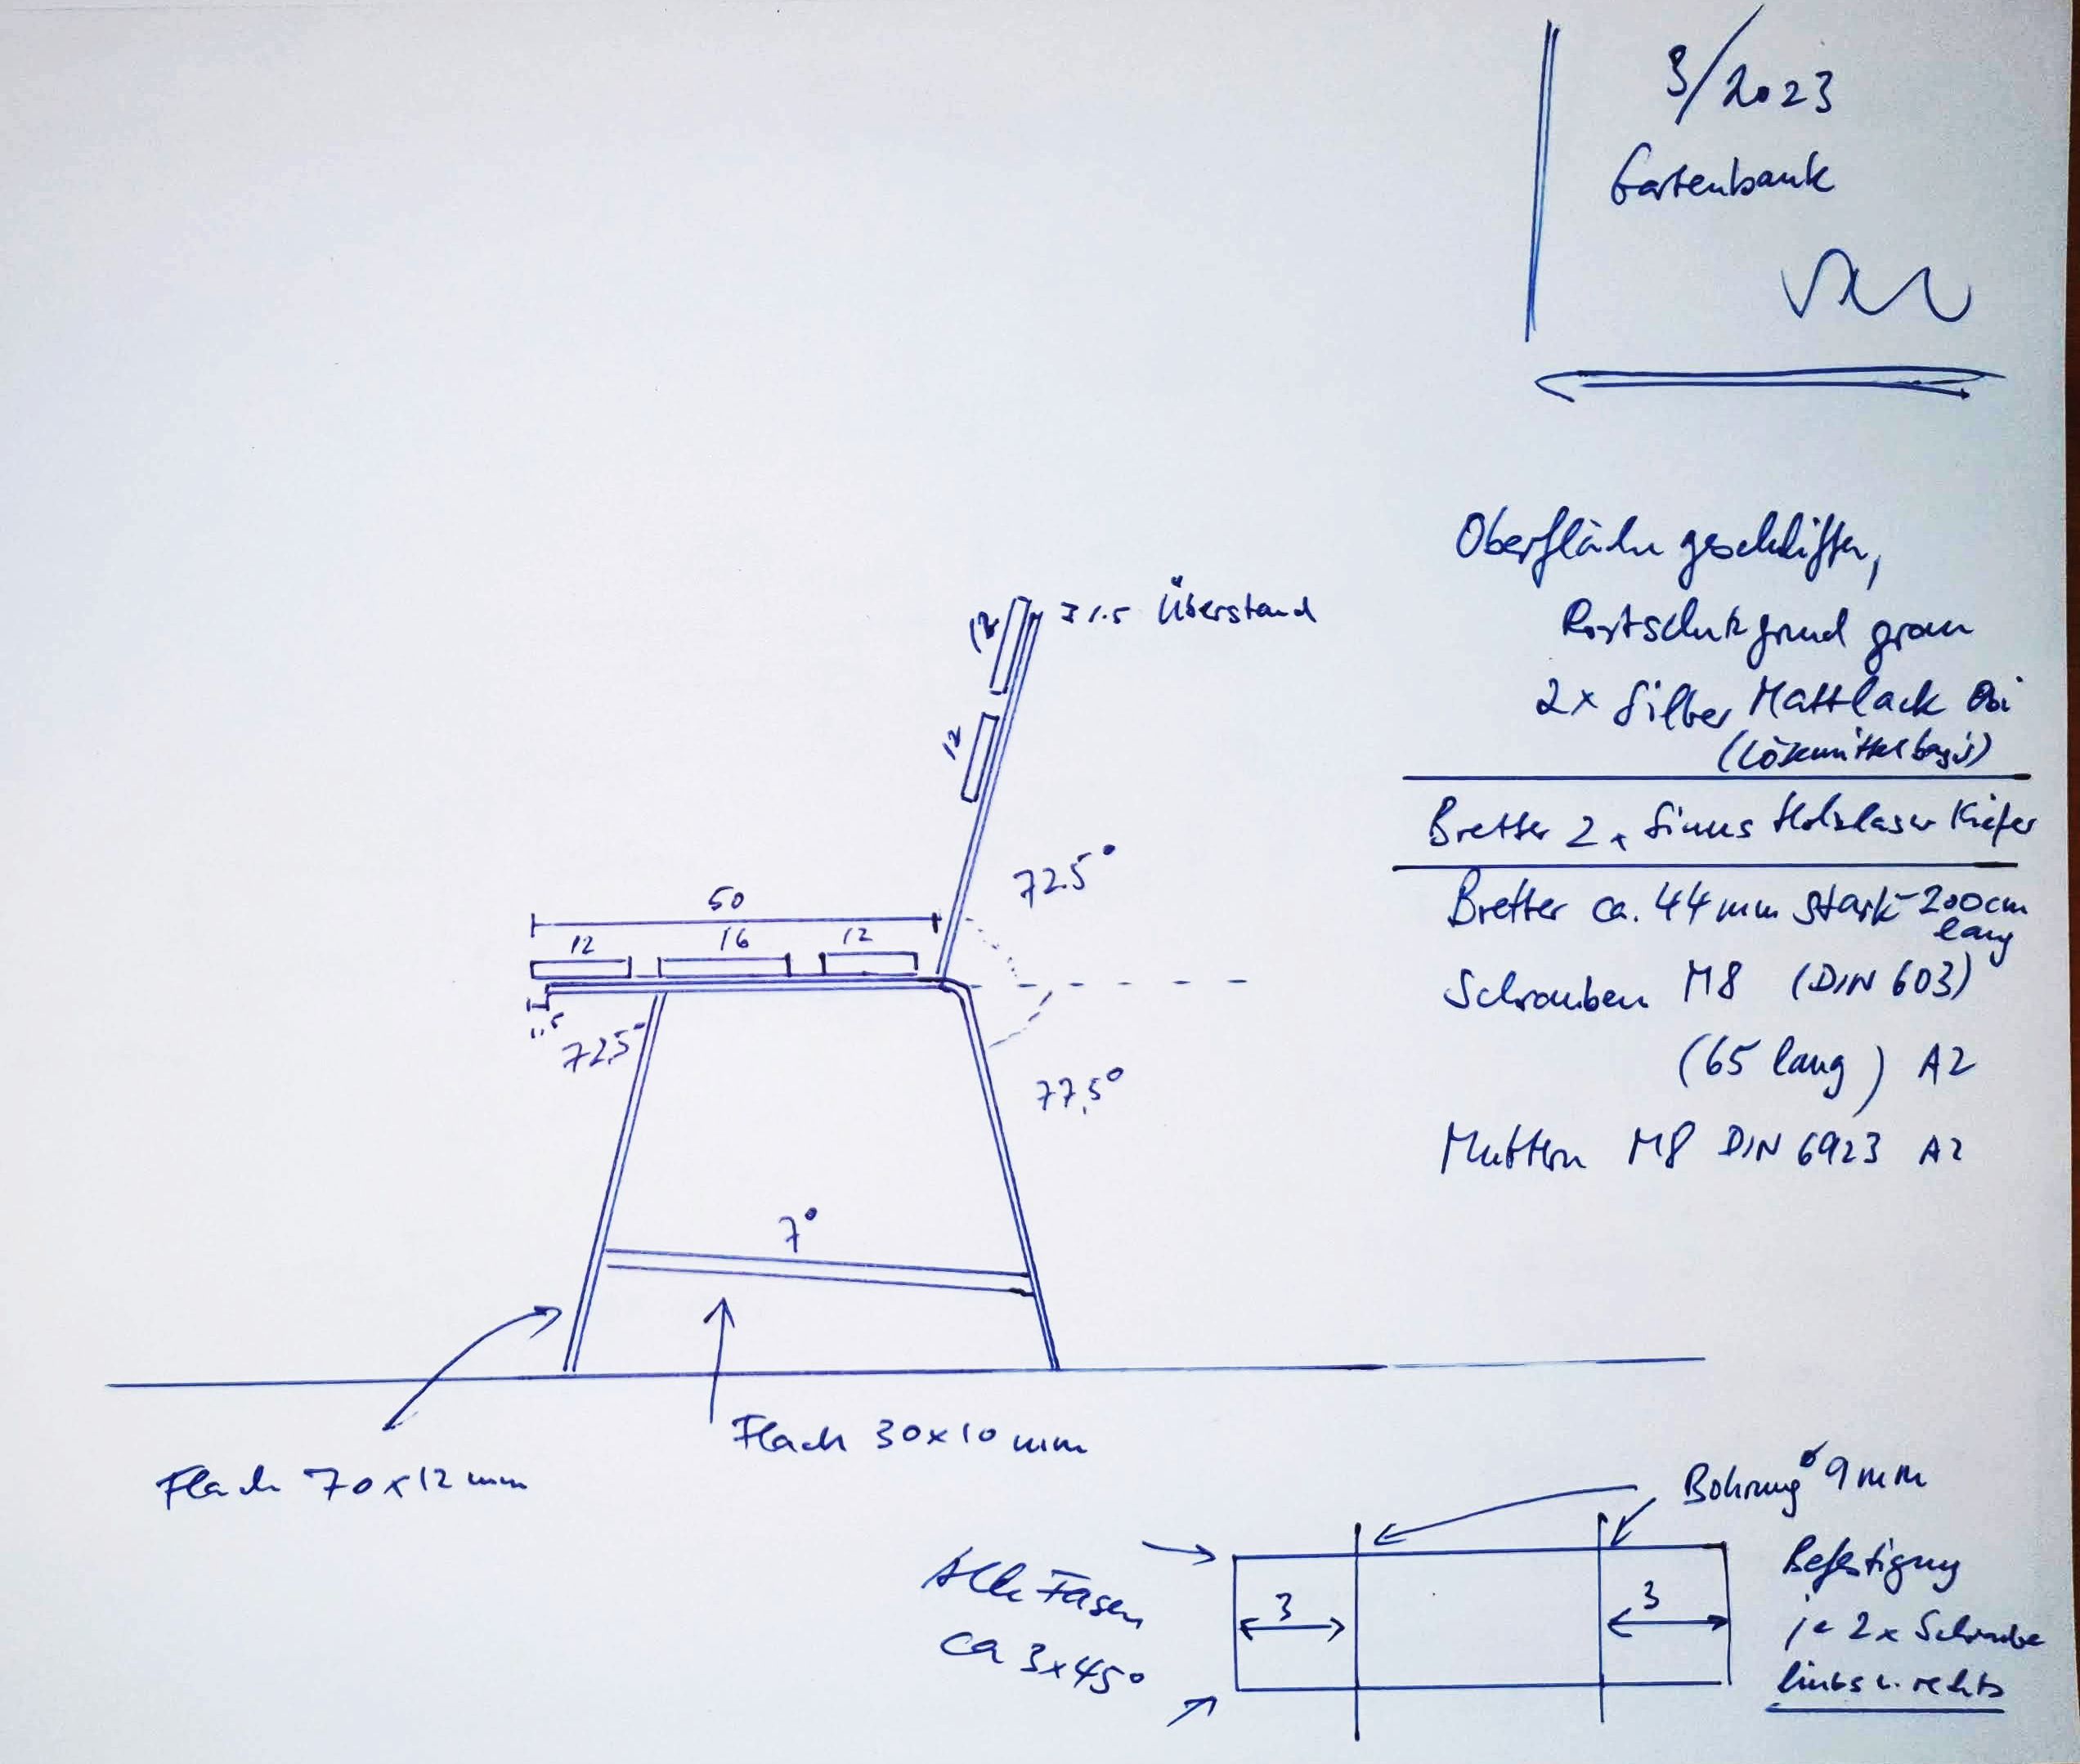 3/2023
Gartenbank
Oberfläche geschliffen,
Rostschutzgrund grau
2x Silber Mattlack
(Lösemittelbasis)
Bretter 2x Sinus Holzlasur Kiefer
Bretter ca. 44mm stark - 200cm
lang
Schrauben M8 (DIN 603)
(65 lang) A2
Muttern M8 DIN 6923 A2
12
1.5 Überstand
12
72.5°
50
12 16 12
1.5
72,5°
77,5°
7°
Flach 30x10mm
Flach 70x12mm
Bohrung ø 9mm
Alle Fasen
ca 3x45°
3 3
Befestigung
je 2x Schraube
links u. rechts